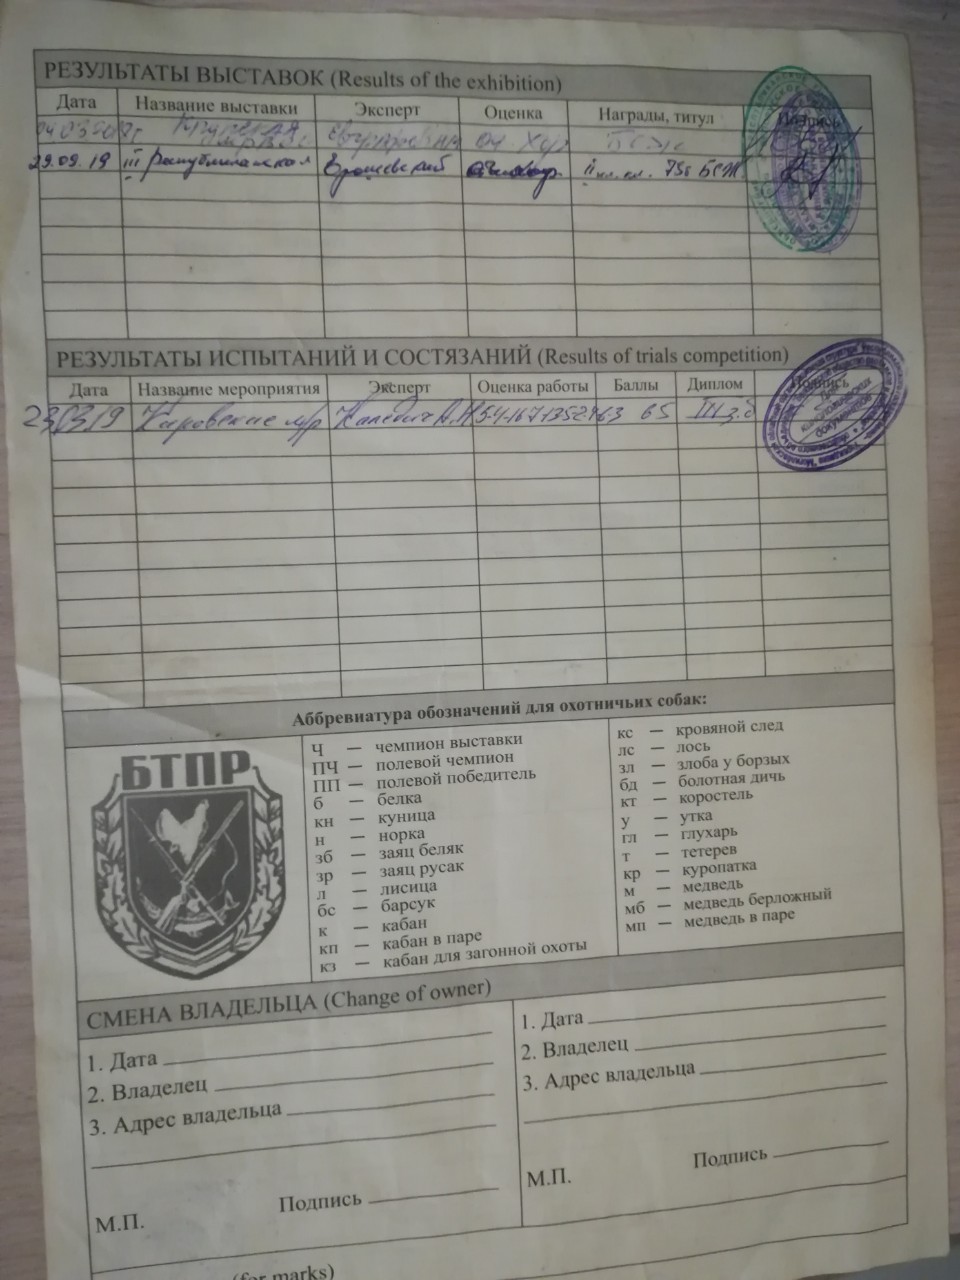 РЕЗУЛЬТАТЫ ВЫСТАВОК (Results of the exhibition)
Дата Название выставки Эксперт Оценка Награды, титул Подпись
оч хор БСЖ
29.09.19 III Республиканская II пл. кл. БСЖ
РЕЗУЛЬТАТЫ ИСПЫТАНИЙ И СОСТЯЗАНИЙ (Results of trials competition)
Дата Название мероприятия Эксперт Оценка работы Баллы Диплом Подпись
23.03.19 Кировские м/р 65 III
Аббревиатура обозначений для охотничьих собак:
БТПР
Ч — чемпион выставки
ПЧ — полевой чемпион
ПП — полевой победитель
б — белка
кн — куница
н — норка
зб — заяц беляк
зр — заяц русак
л — лисица
бс — барсук
к — кабан
кп — кабан в паре
кз — кабан для загонной охоты
кс — кровяной след
лс — лось
зл — злоба у борзых
бд — болотная дичь
кт — коростель
у — утка
гл — глухарь
т — тетерев
кр — куропатка
м — медведь
мб — медведь берложный
мп — медведь в паре
СМЕНА ВЛАДЕЛЬЦА (Change of owner)
1. Дата
2. Владелец
3. Адрес владельца
Подпись
М.П.
1. Дата
2. Владелец
3. Адрес владельца
Подпись
М.П.
(for marks)